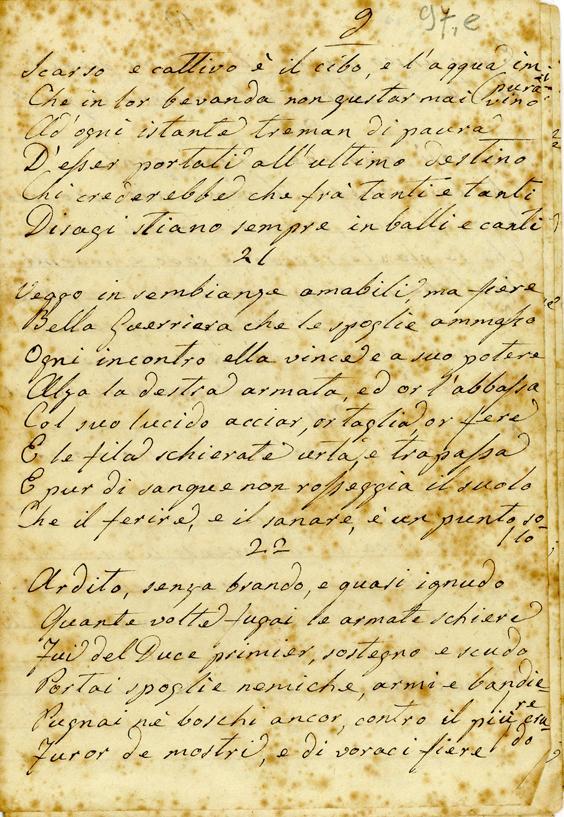 9 97,e
Scarso e cattivo è il cibo, e l'acqua im:
pura
Che in lor bevanda non gustar mai vino
Ad' ogni istante treman di paura
D'esser portati all'ultimo destino
Chi crederebbe che frà tanti e tanti
Disagi stiano sempre in balli e canti
21
Veggo in sembianze amabili, ma fiere
Bella Guerriera che le spoglie ammassa
Ogni incontro ella vince e a suo potere
Alza la destra armata, ed or l'abbassa
Col suo lucido acciar, or taglia or fere
E le fila schierate urta, e trapassa
E pur di sangue non rosseggia il suolo
Che il ferire, e il sanare, è un punto so-
lo
22
Ardito, senza brando, e quasi ignudo
Quante volte fugai le armate schiere
Fui del Duce primier, sostegno e scudo
Portai spoglie nemiche, armi e bandie
re
Pugnai nè boschi ancor, contro il più cru-
do
Furor de mostri, e di voraci fiere